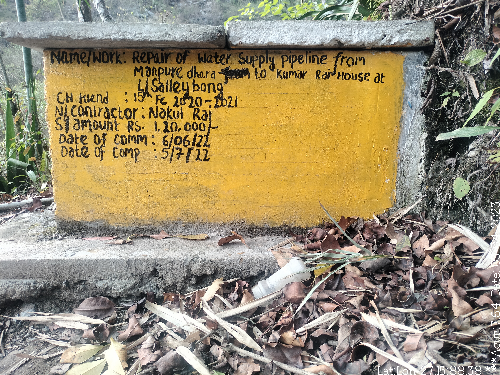 Name/Work: Repair of Water supply pipeline from
Manpure dhara from to Kumar Rai House at
L/Saileybong
: 15th FC 2020-2021
N/Contractor: Nakul Rai
S/amount Rs. 1,20,000/-
Date of comm: 6/06/22
Date of Comp: 5/7/22